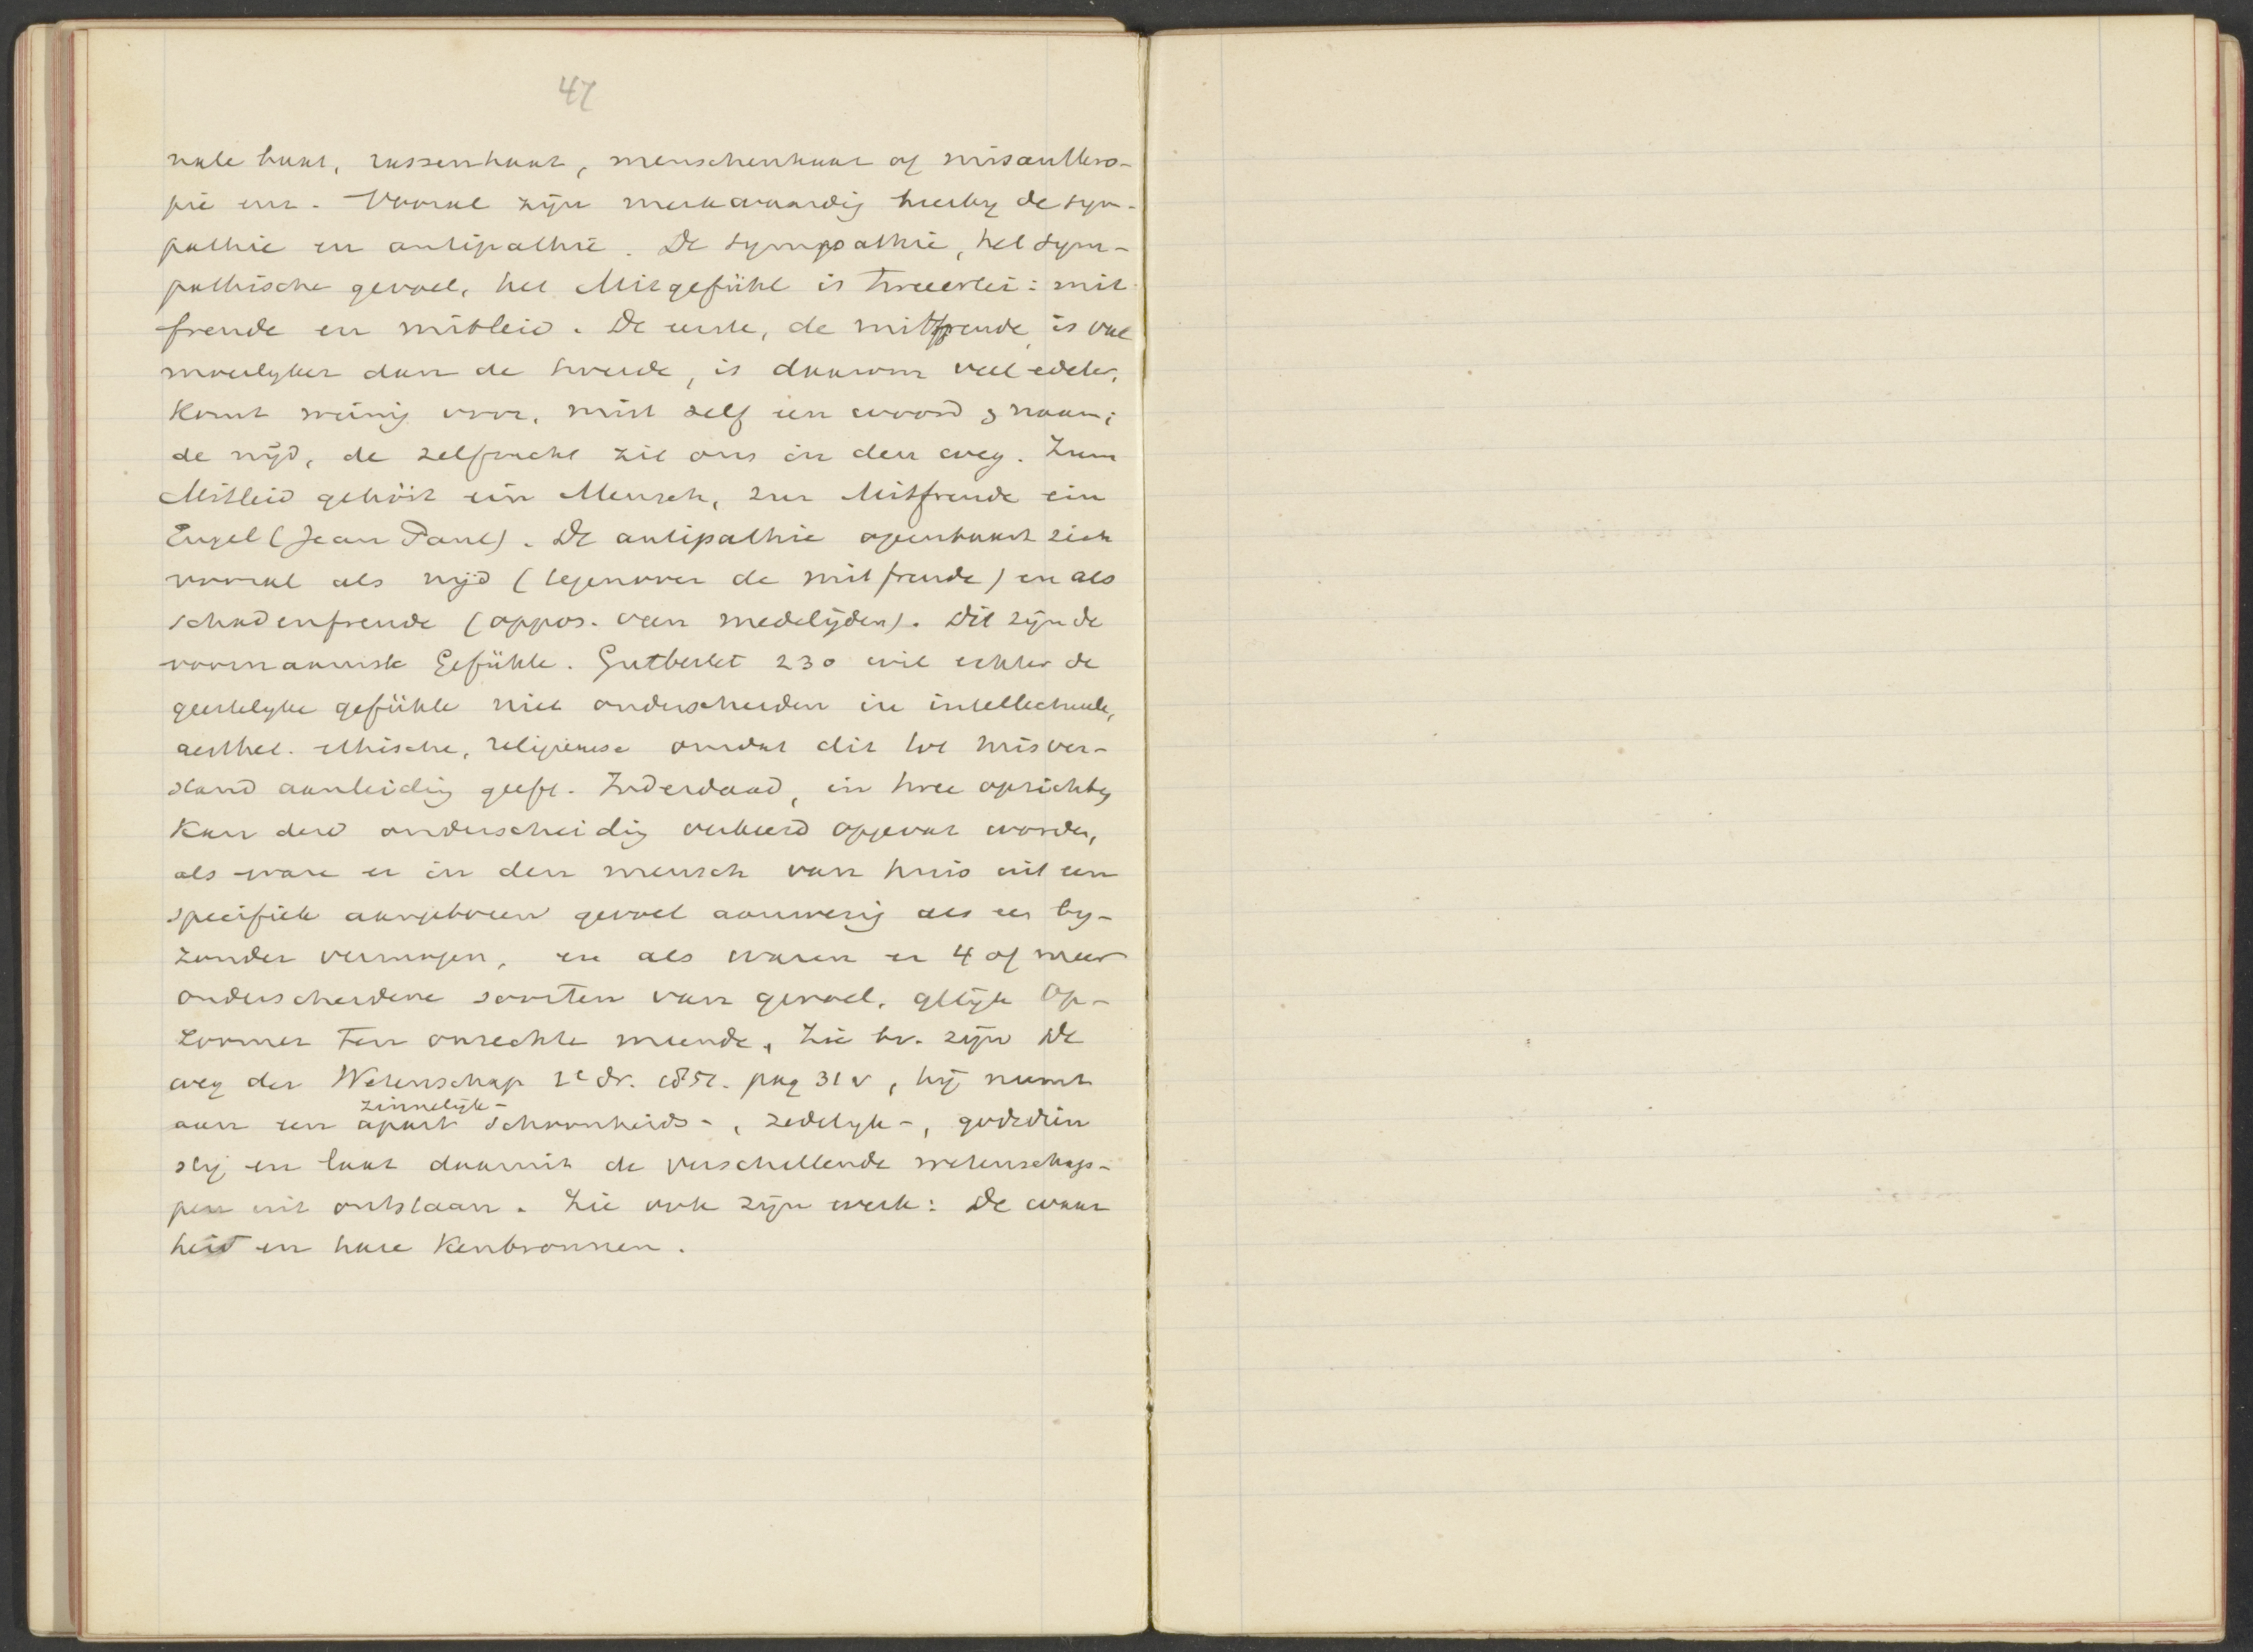 47
nale haat, rassenhaat, menschenhaat of misanthro-
pie enz. Vooral zijn merkwaardig hierby de sym-
pathie en antipathie. De sympathie, het sym-
pathische gevoel, het Mitgefühl is tweeerlei: mit
freude en mitleid. De eerste, de mitfreude, is veel
moeilyker dan de tweede, is daarom veel edeler,
komt weinig voor, mist zelf een woord, naam;
de nijd, de zelfzucht zit ons in den weg. Zum
Mitleid gehört ein Mensch, zur Mitfreude ein
Engel (Jean Paul). De antipathie openbaart zich
vooral als nijd (tegenover de mitfreude) en als
schadenfreude (oppos. van medelijden). Dit zijn de
voornaamste Gefühle. Gutberlet 230 wil echter de
geestelyke gefühle niet onderscheiden in intellectueele,
aesthet. ethische, religieuse omdat dit tot misver-
stand aanleiding geeft. Inderdaad, in twee opzichten
kan deze onderscheiding verkeerd opgevat worden,
als ware er in den mensch van huis uit een
specifiek aangeboren gevoel aanwezig als een by-
zonder vermogen, en als waren er 4 of meer
onderscheidene soorten van gevoel, gelijk Op-
zoomer ten onrechte meende, Zie bv. zijn De
weg der Wetenschap 1e dr. 1851. pag 31 v, hij neemt
zinnelijk-
aan een apart schoonheids-, zedelyk-, godsdien
stig en laat daaruit de verschillende wetenschap-
pen uit ontstaan. Zie ook zijn werk: De waar
heid en hare Kenbronnen.